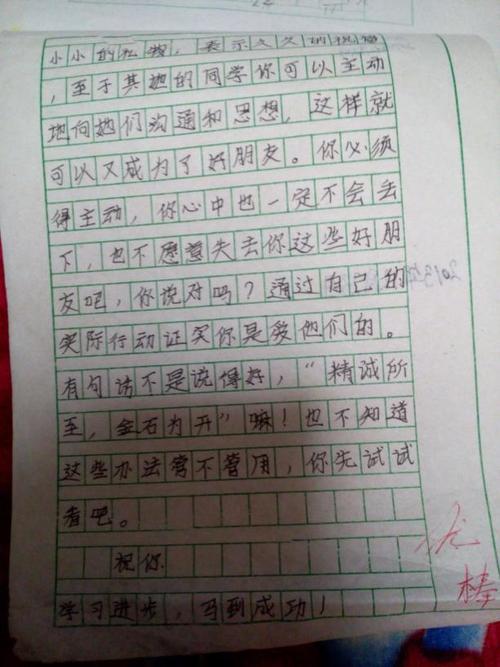 小小的礼物，表示久久的祝福
，至于其她的同学你可以主动
地向她们沟通和思想，这样就
可以又成为了好朋友。你必须
得主动，你心中也一定不会丢
下，也不愿意失去你这些好朋
友吧，你说对吗？通过自己的
实际行动证实你是爱他们的。
有句话不是说得好，“精诚所
至，金石为开”嘛！也不知道
这些办法管不管用，你先试试
看吧。
祝你
学习进步，马到成功！
优
棒